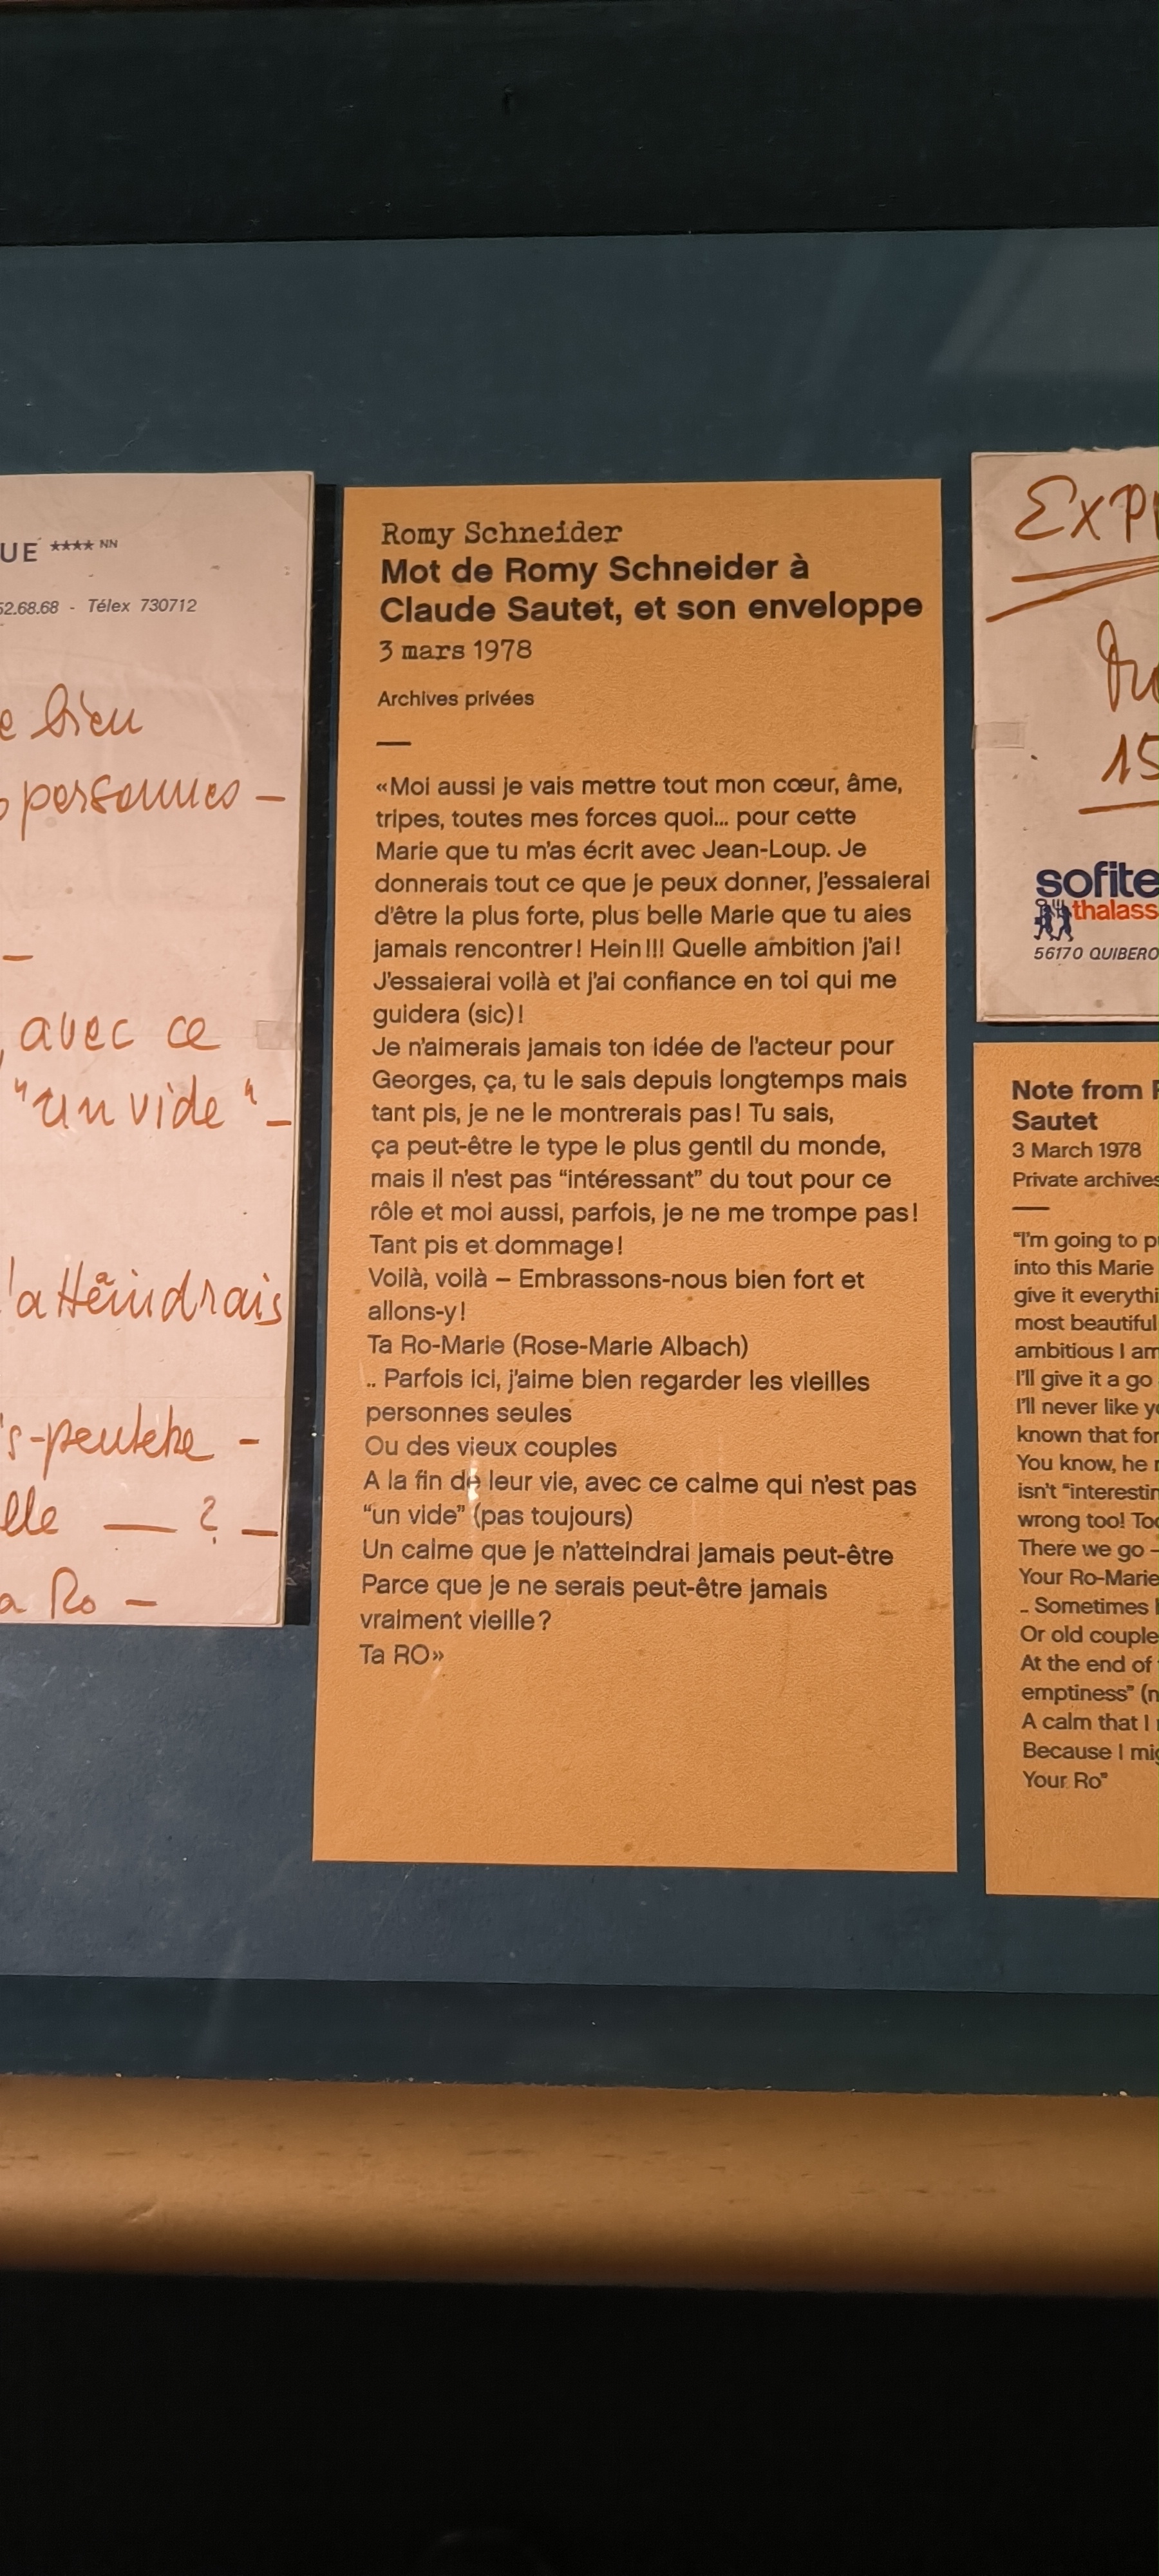 UE **** NN
52.68.68 - Télex 730712
bien
personnes —
—
, avec ce
"un vide" —
l'attëindrais
—
— ? —
Ro —
Romy Schneider
Mot de Romy Schneider à
Claude Sautet, et son enveloppe
3 mars 1978
Archives privées
—
«Moi aussi je vais mettre tout mon cœur, âme,
tripes, toutes mes forces quoi... pour cette
Marie que tu m'as écrit avec Jean-Loup. Je
donnerais tout ce que je peux donner, j'essaierai
d'être la plus forte, plus belle Marie que tu aies
jamais rencontrer! Hein!!! Quelle ambition j'ai!
J'essaierai voilà et j'ai confiance en toi qui me
guidera (sic)!
Je n'aimerais jamais ton idée de l'acteur pour
Georges, ça, tu le sais depuis longtemps mais
tant pis, je ne le montrerais pas! Tu sais,
ça peut-être le type le plus gentil du monde,
mais il n'est pas “intéressant” du tout pour ce
rôle et moi aussi, parfois, je ne me trompe pas!
Tant pis et dommage!
Voilà, voilà – Embrassons-nous bien fort et
allons-y!
Ta Ro-Marie (Rose-Marie Albach)
.. Parfois ici, j'aime bien regarder les vieilles
personnes seules
Ou des vieux couples
A la fin de leur vie, avec ce calme qui n'est pas
“un vide” (pas toujours)
Un calme que je n'atteindrai jamais peut-être
Parce que je ne serais peut-être jamais
vraiment vieille?
Ta RO»
EXP
15
sofite
thalass
56170 QUIBERO
Note from
Sautet
3 March 1978
Private archives
—
“I'm going to
into this Marie
give it everythi
most beautiful
ambitious I am
I'll give it a go
I'll never like
known that for
You know, he
isn't “interestin
wrong too! Too
There we go –
Your Ro-Marie
.. Sometimes
Or old couple
At the end of
emptiness” (n
A calm that I
Because I mig
Your Ro”